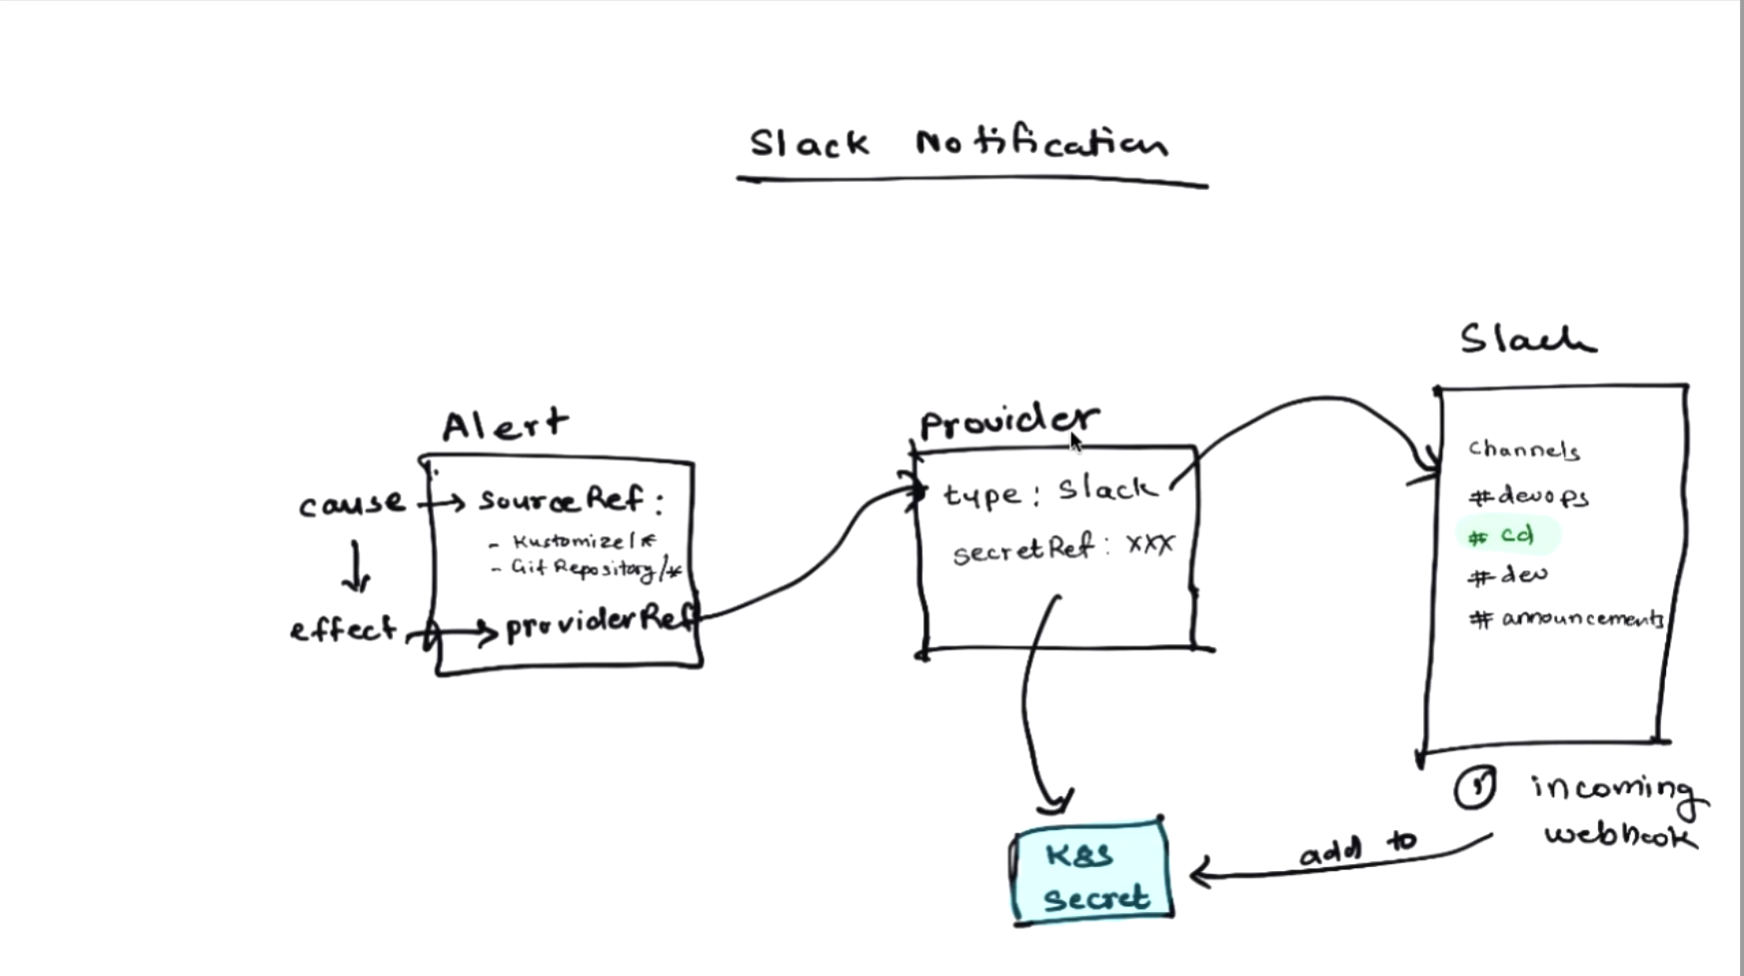 Slack Notification
Alert
cause
sourceRef:
- Kustomize/*
- GitRepository/*
effect
providerRef
Provider
type: Slack
secretRef: xxx
Slack
channels
#devops
# cd
# dev
# announcements
1 incoming
webhook
add to
K8S
Secret